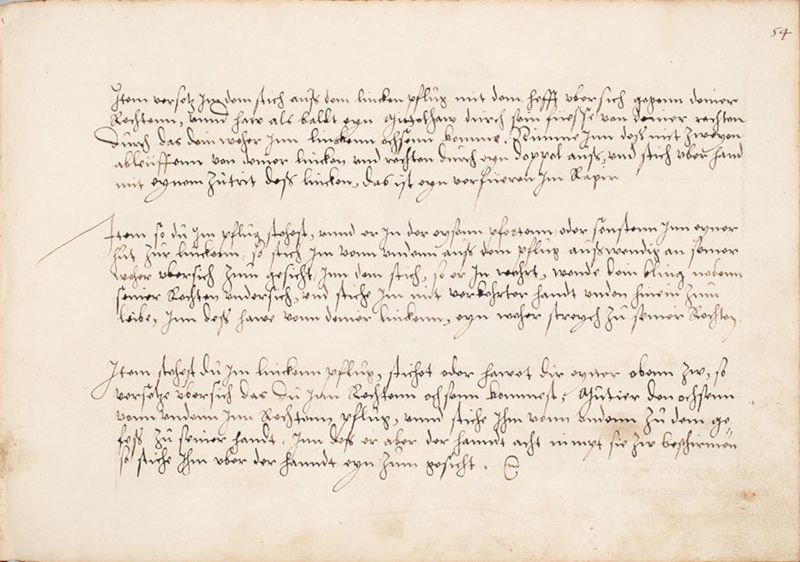 54
Item versetz Im dem stich auß dem lincken pflug mit dem hefft vbersich gegenn deiner
Rechtenn, vnnd haw als baldt eyn mittelhaw durch sein füesse von deiner rechten
Durch das dein weher Inn linckenn ochsenn komme. Nimme Inn deß mit zweyen
ableuffenn von deiner lincken vnd rechten durch eyn doppel auß, vnd stich vber hand
mit eynem zutrit deß lincken, das ist eyn verfüeren Im Rapir
Item so du Im pflug stehest, vnnd er In der eysenn pfortenn, oder sonstenn Inn eyner
hut zur linckenn, so stich Im vonn vndenn auß dem pflug außwendig an seiner
weher vbersich zum gesicht, Inn dem stich, so er In wehrt, wende dein kling nebenn
seiner Rechten vndersich, vnd stich Im mit verkehrter handt vnden hinein zum
leibe, Inn deß hawe vonn deiner linckenn, eyn weher streych zu seiner Rechten
Item stehest du Im linckenn pflug, stichet oder hawet dir eyner obenn zw, so
versetze vbersich das du Inn Rechtenn ochsenn kommest, Mutier den ochsenn
vonn vndenn Inn Rechtenn pflug, vnnd stiche Ihm vonn vndenn zu dem ge-
feß zu seiner handt, Inn deß er aber der handt acht nimpt sie zw beschirmen
so stiche Ihm vber der handt eyn zum gesicht.